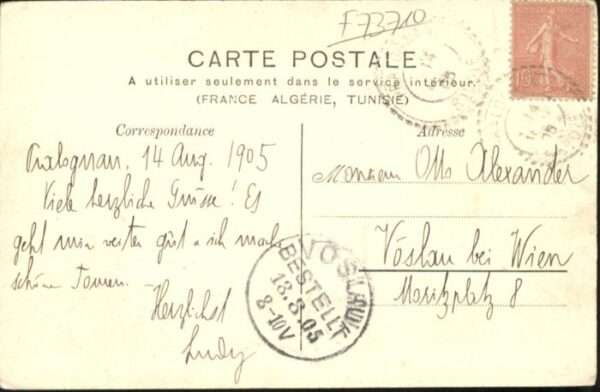 F73710
CARTE POSTALE
A utiliser seulement dans le service intérieur.
(FRANCE ALGÉRIE, TUNISIE)
Correspondance
Adresse
Pralognan, 14 Aug. 1905
Viele herzliche Grüsse! Es
geht mir weiter gut u. ich mache
schöne Touren.
Herzlichst
Ludy
Monsieur Otto Alexander
Vöslau bei Wien
Moritzplatz 8
VÖSLAU
BESTELLT
18.8.05
8-10V
10